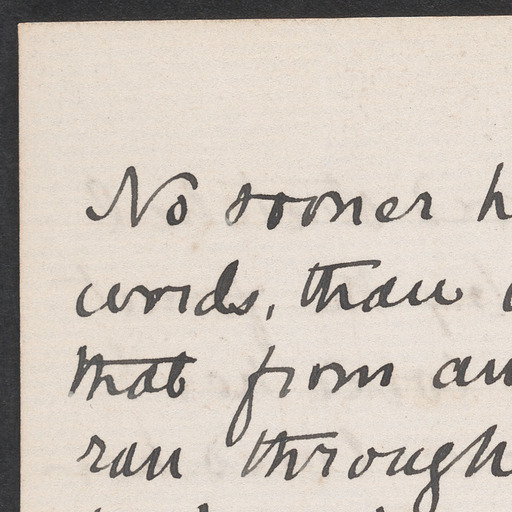 No sooner h
words, than
that from an
ran through